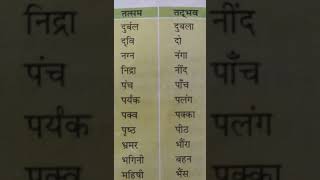 तत्सम तद्भव
दुर्बल दुबला
द्वि दो
नग्न नंगा
निद्रा नींद
पंच पाँच
पर्यंक पलंग
पक्व पक्का
पृष्ठ पीठ
भ्रमर भौंरा
भगिनी बहन
महिषी भैंस